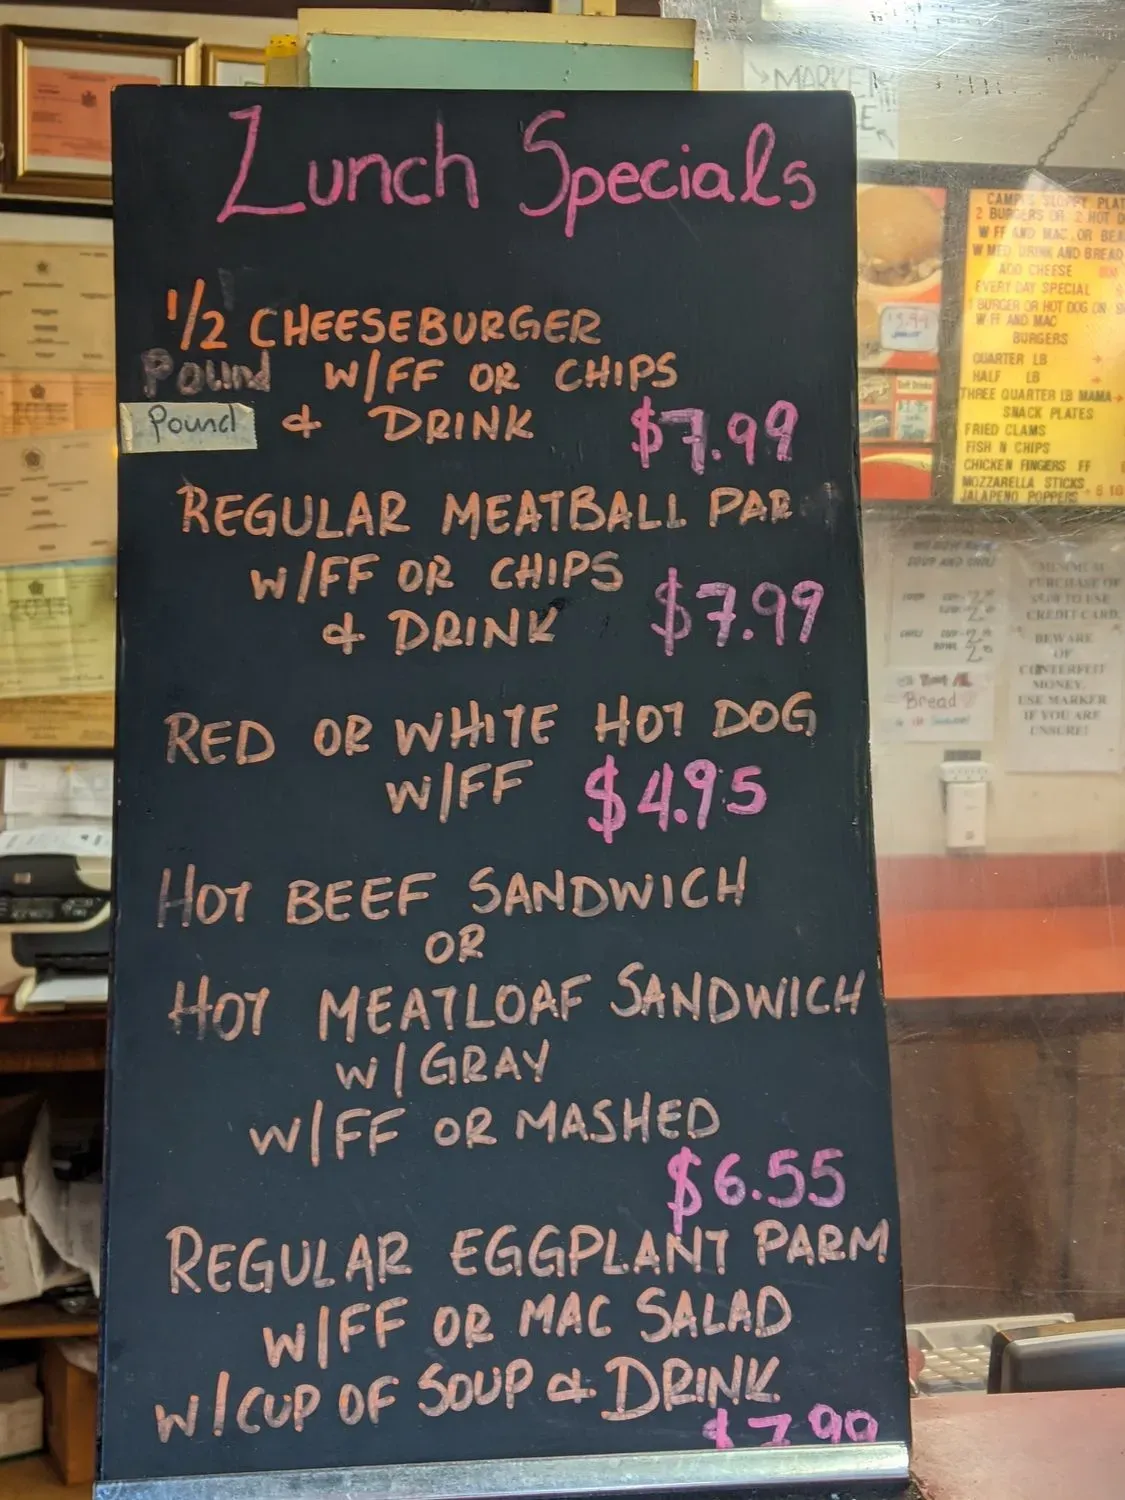 Lunch Specials
1/2 CHEESEBURGER
Pound W/FF OR CHIPS
Pound & DRINK $7.99
REGULAR MEATBALL PAR
W/FF OR CHIPS
& DRINK $7.99
RED OR WHITE HOT DOG
W/FF $4.95
HOT BEEF SANDWICH
OR
HOT MEATLOAF SANDWICH
W/GRAY
W/FF OR MASHED
$6.55
REGULAR EGGPLANT PARM
W/FF OR MAC SALAD
W/CUP OF SOUP & DRINK
$7.99
MARKET
SLOPPY PLAT
2 BURGERS OR 2 HOT D
W FF AND MAC OR BEA
W MED DRINK AND BREAD
ADD CHEESE
EVERY DAY SPECIAL
1 BURGER OR HOT DOG ON
W FF AND MAC
BURGERS
QUARTER LB
HALF LB
THREE QUARTER LB MAMA
SNACK PLATES
FRIED CLAMS
FISH N CHIPS
CHICKEN FINGERS FF
MOZZARELLA STICKS
JALAPENO POPPERS
SOUP AND CHILI
Bread
MINIMUM
PURCHASE OF
TO USE
CREDIT CARD
BEWARE
OF
CONTERFEIT
MONEY.
USE MARKER
IF YOU ARE
UNSURE!